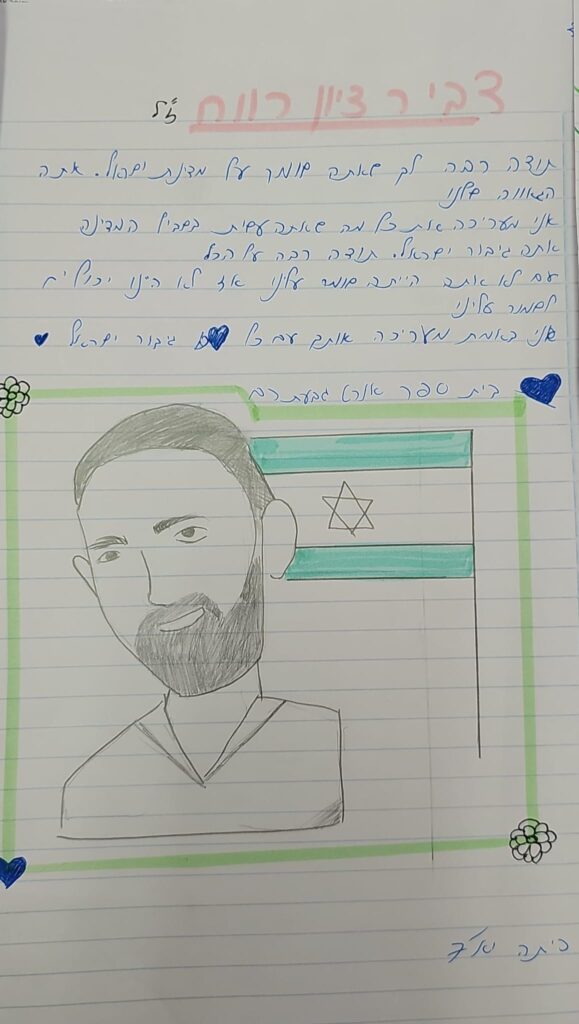 דביר ציון רווח ז"ל
תודה רבה לך שאתה שומר על מדינת ישראל. אתה
הגאווה שלנו
אני מעריכה את כל מה שאתה עשית בשביל המדינה
אתה גיבור ישראל. תודה רבה על הכל
עם לא אתה הייתה שומר עלינו אז לא היינו יכולים
לשמור עלינו
אני באמת מעריכה אותך עם כל גיבור ישראל
בית ספר אורט גבעת רם
כיתה יא'7